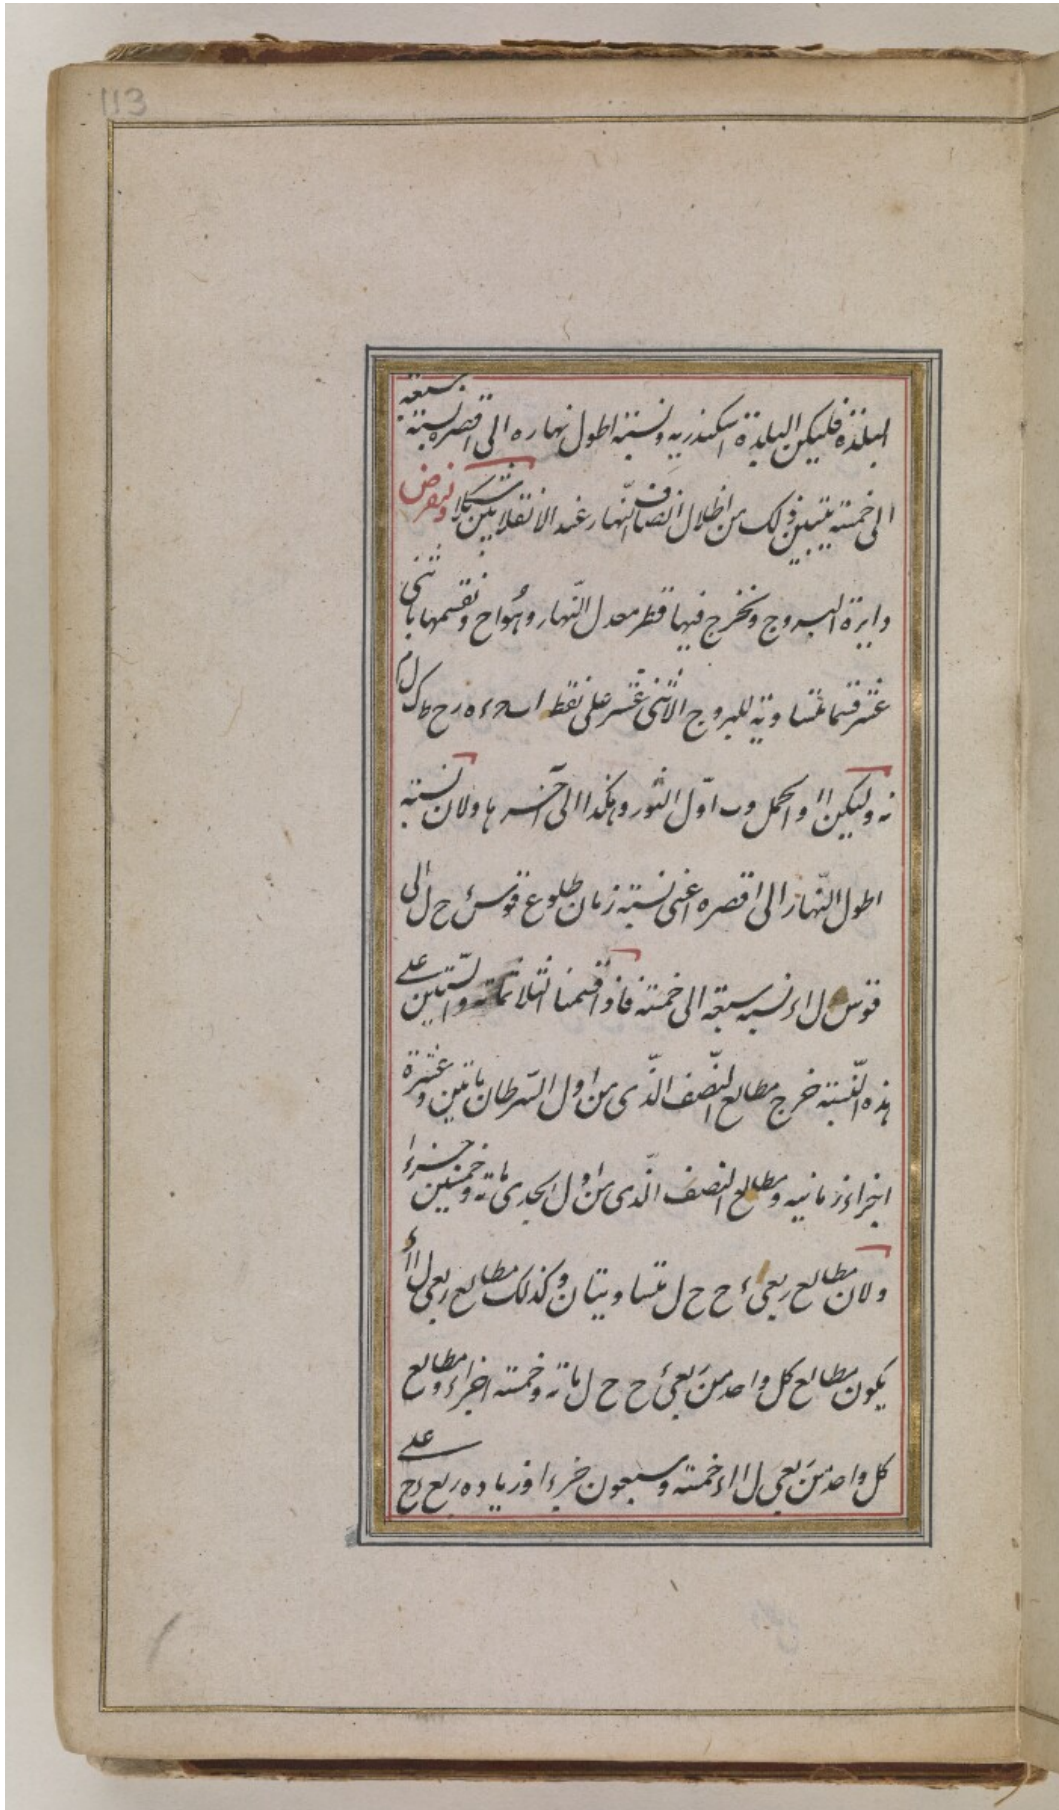 113
البلدة فليكن البلدة اسكندريه ونسبة اطول نهاره الى اقصره نسبة سبعة
الى خمسة يتبين ذلك من اظلال انصاف النّهار عند الانقلابين شكلا ونفرض
دايرة البروج ونخرج فيها قطر معدل النّهار وهو اح ونقسمها باثنى
عشر قسما متساوية للبروج الاثنى عشر على نقط ا ب ح ء ه ر ح ط ك ل م
نه وليكن ا اول الحمل وب اوّل الثور وهكذا الى آخرها ولان نسبة
اطول النّهار الى اقصره اعنى نسبة زمان طلوع قوس ء ح ل الى
قوس ل ا ء نسبة سبعة الى خمسة فاذا قسمنا الثلاثمائة والستّين على
هذه النّسبة خرج مطالع النّصف الّذى من اول السّرطان مائتين وعشرة
اجزاء زمانيه ومطالع النصف الّذى من اول الجدى مائة وخمسين جزءا
ولان مطالع ربعى ء ح ح ل متساويتان وكذلك مطالع ربعى ل ا ا ء
يكون مطالع كل واحد من ربعى ء ح ح ل مائة وخمسة اجزاء ومطالع
كل واحد من ربعى ل ا ا ء خمسة وسبعون جزءا وزيادة ربع ء ح على